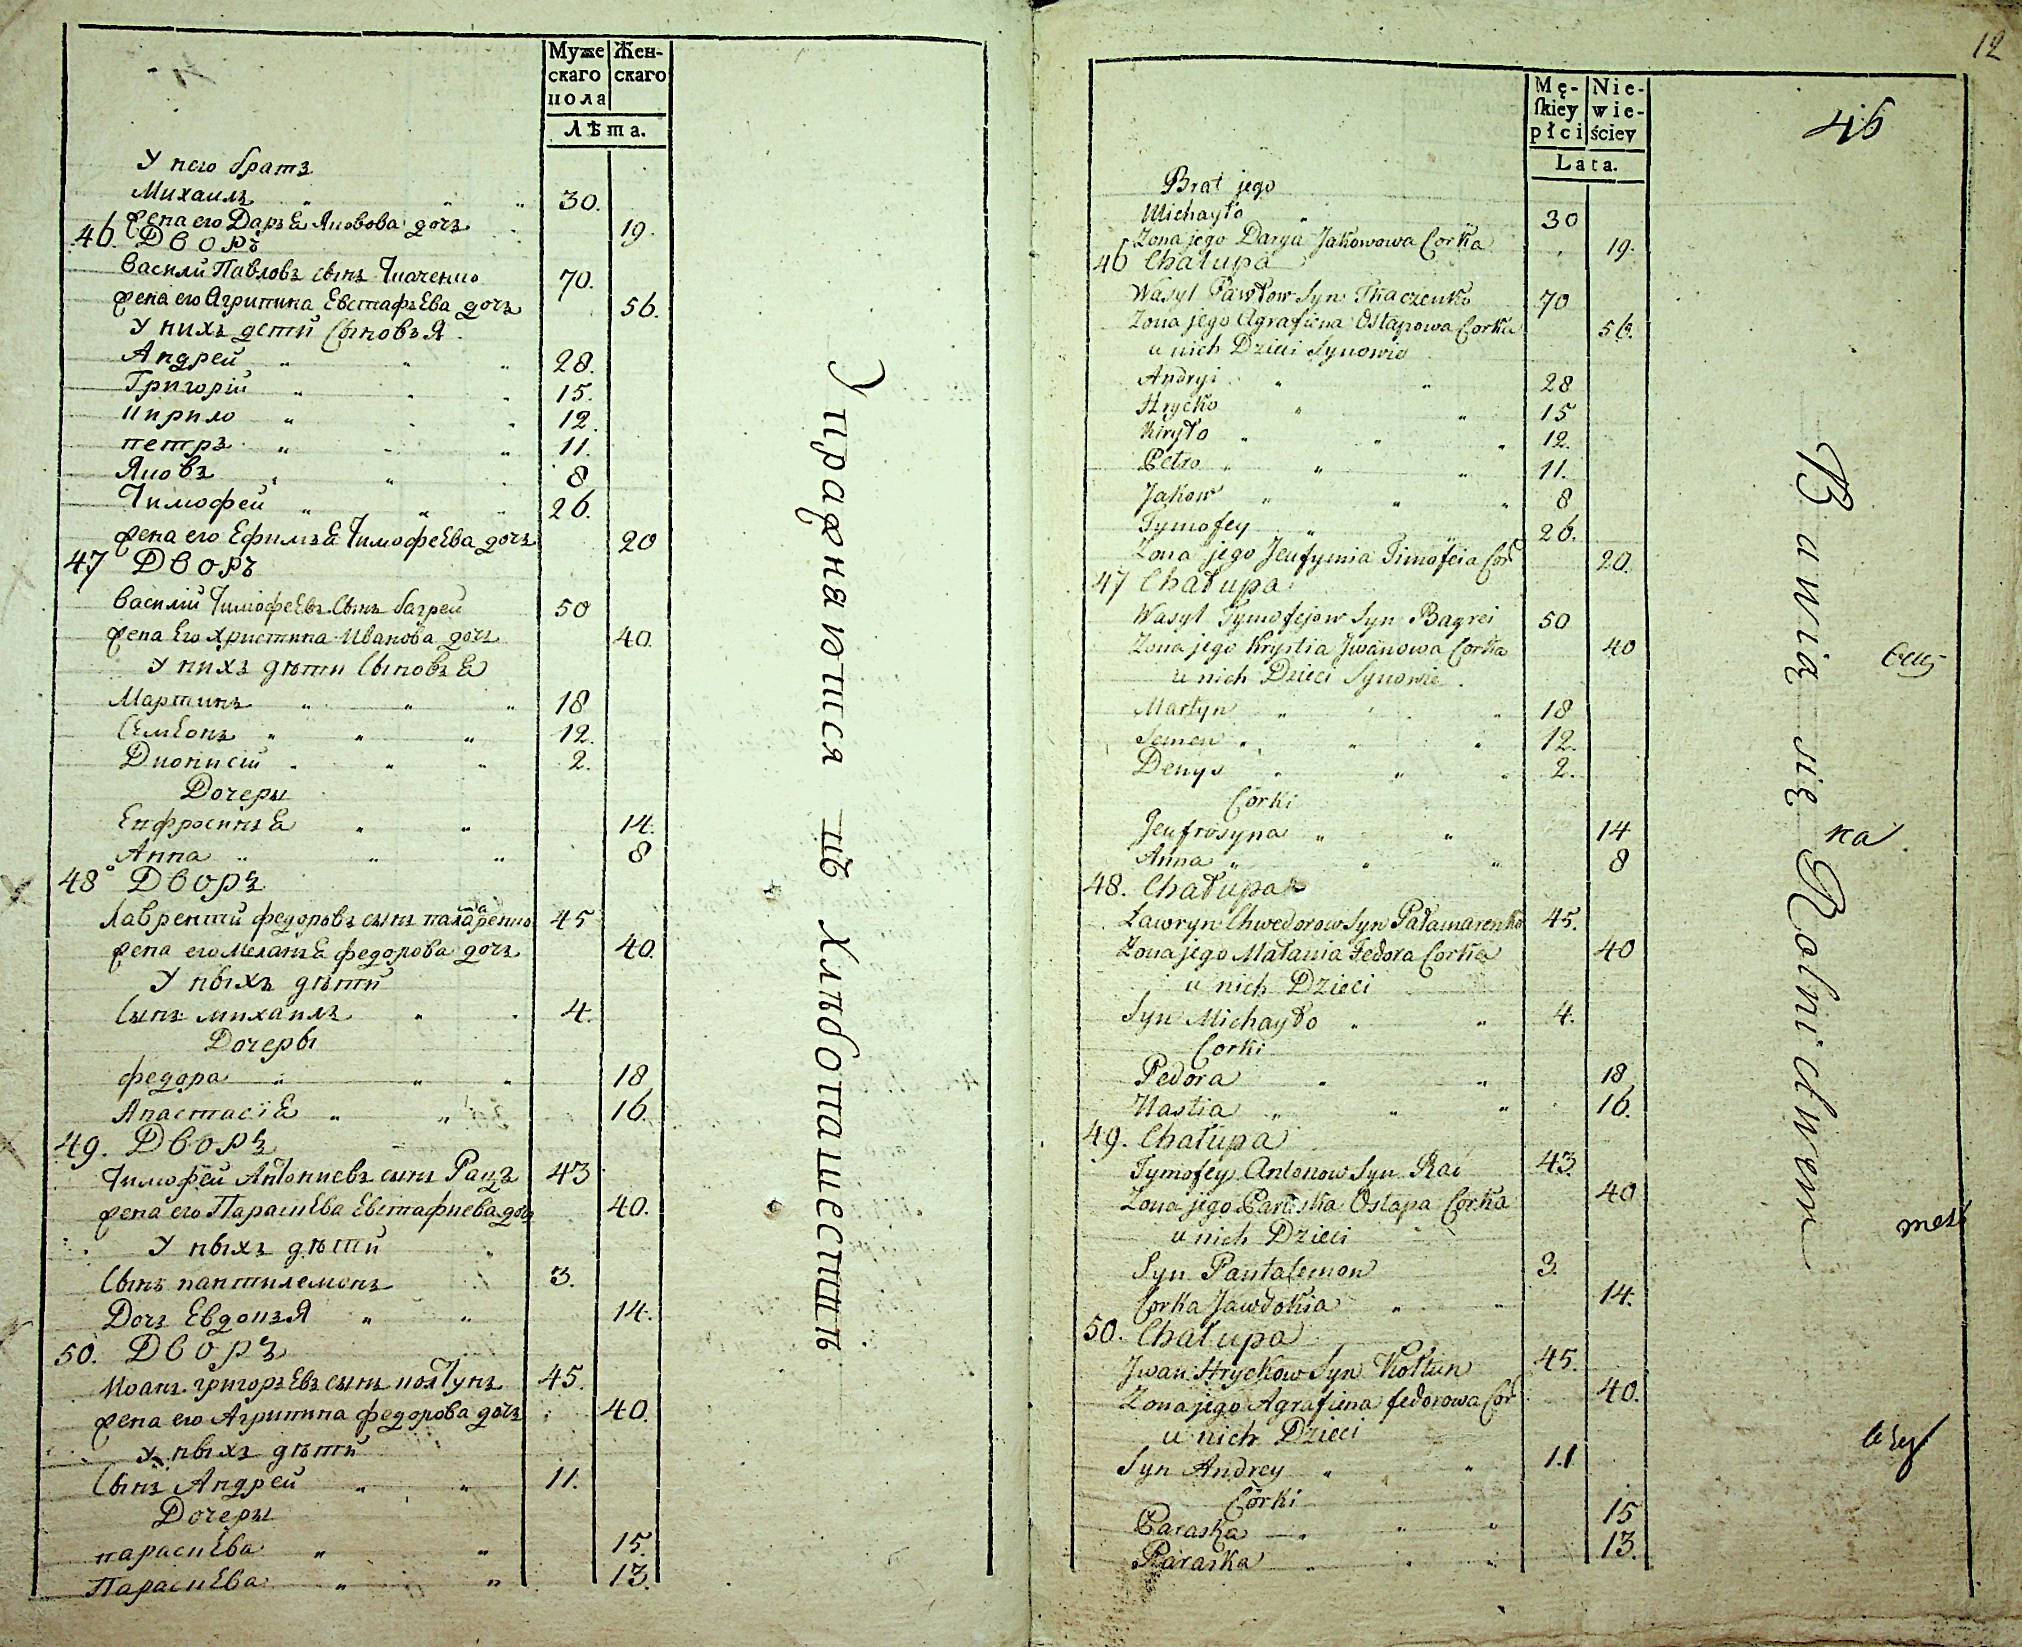 Муже Жен-
скаго скаго
пола
Лѣта.
У него братъ
Михаилъ 30.
жена его Дарья Яковова дочь 19.
46. Дворъ
Василий Павловъ сынъ Ткаченко 70.
жена его Агрипина Евстафьева дочь 56.
У нихъ дети сыновья
Андрей 28.
Григорій 15.
Кирило 12.
петръ 11.
Яковъ 8
Тимофей 26.
жена его Ефимья Тимофеева дочь 20
47 Дворъ
Василій Тимофеевъ сынъ багрей 50
жена Его христина Иванова дочь 40.
У нихъ дѣти сыновья
Мартинъ 18
Семенъ 12.
Дионисій 2.
Дочеры
Ефросинья 14.
Анна 8
48 Дворъ
Лаврентий федоровъ сынъ паламаренко 45
жена его меланья федорова дочь 40.
У ныхъ дѣти
сынъ михаилъ 4.
Дочеры
федора 18
Анастасія 16.
49. Дворъ
Тимофей Антониевъ сынъ Рацъ 43
жена его Параскева Евстафиева дочь 40.
У ныхъ дѣти
сынъ пантилемонъ 3.
Дочь Евдокья 14.
50. Дворъ
Иоанъ григорьевъ сынъ колтунъ 45.
жена его Агрипина федорова дочь 40.
У ныхъ дѣти
сынъ Андрей 11.
Дочеры
параскева 15.
Параскева 13.
Упражнаютися въ Хлѣбопашествѣ
12
46
Mę- Nie-
skiey wie-
płci ściey
Lata.
Brat jego
Michayło 30
Zona jego Darya Jakowowa Corka 19.
46 Chałupa
Wasyl Pawłow Syn Tkaczenko 70
Zona jego Agrafiena Ostapowa Corka 56.
u nich Dzieci Synowie
Andryi 28
Hrycko 15
Kiryło 12.
Petro 11.
Jakow 8
Tymofey 26.
Zona jego Jeufymia Timofeia Cor 20.
47 Chałupa
Wasyl Tymofejow Syn Bagrei 50
Zona jego Krystia Jwanowa Corka 40
u nich Dzieci Synowie
Martyn 18
Semen 12.
Denys 2.
Córki
Jeufrosyna 14
Anna 8
48. Chałupa
Ławryn Chwedorow Syn Pałamarenko 45.
Zona jego Małania Fedora Corka 40
u nich Dzieci
Syn Michayło 4.
Corki
Fedora 18
Nastia 16.
49. Chałupa
Tymofey Antonow Syn Rac 43.
Zona jego Paraska Ostapa Corka 40
u nich Dzieci
Syn Pantalemon 3.
Corka Jawdokia 14.
50. Chałupa
Jwan Hryckow Syn Kołtun 45.
Zona jego Agrafiena fedorowa Cor 40.
u nich Dzieci
Syn Andrey 11
Córki
Paraska 15
Paraska 13.
Bawią się Rolnictwem
ка